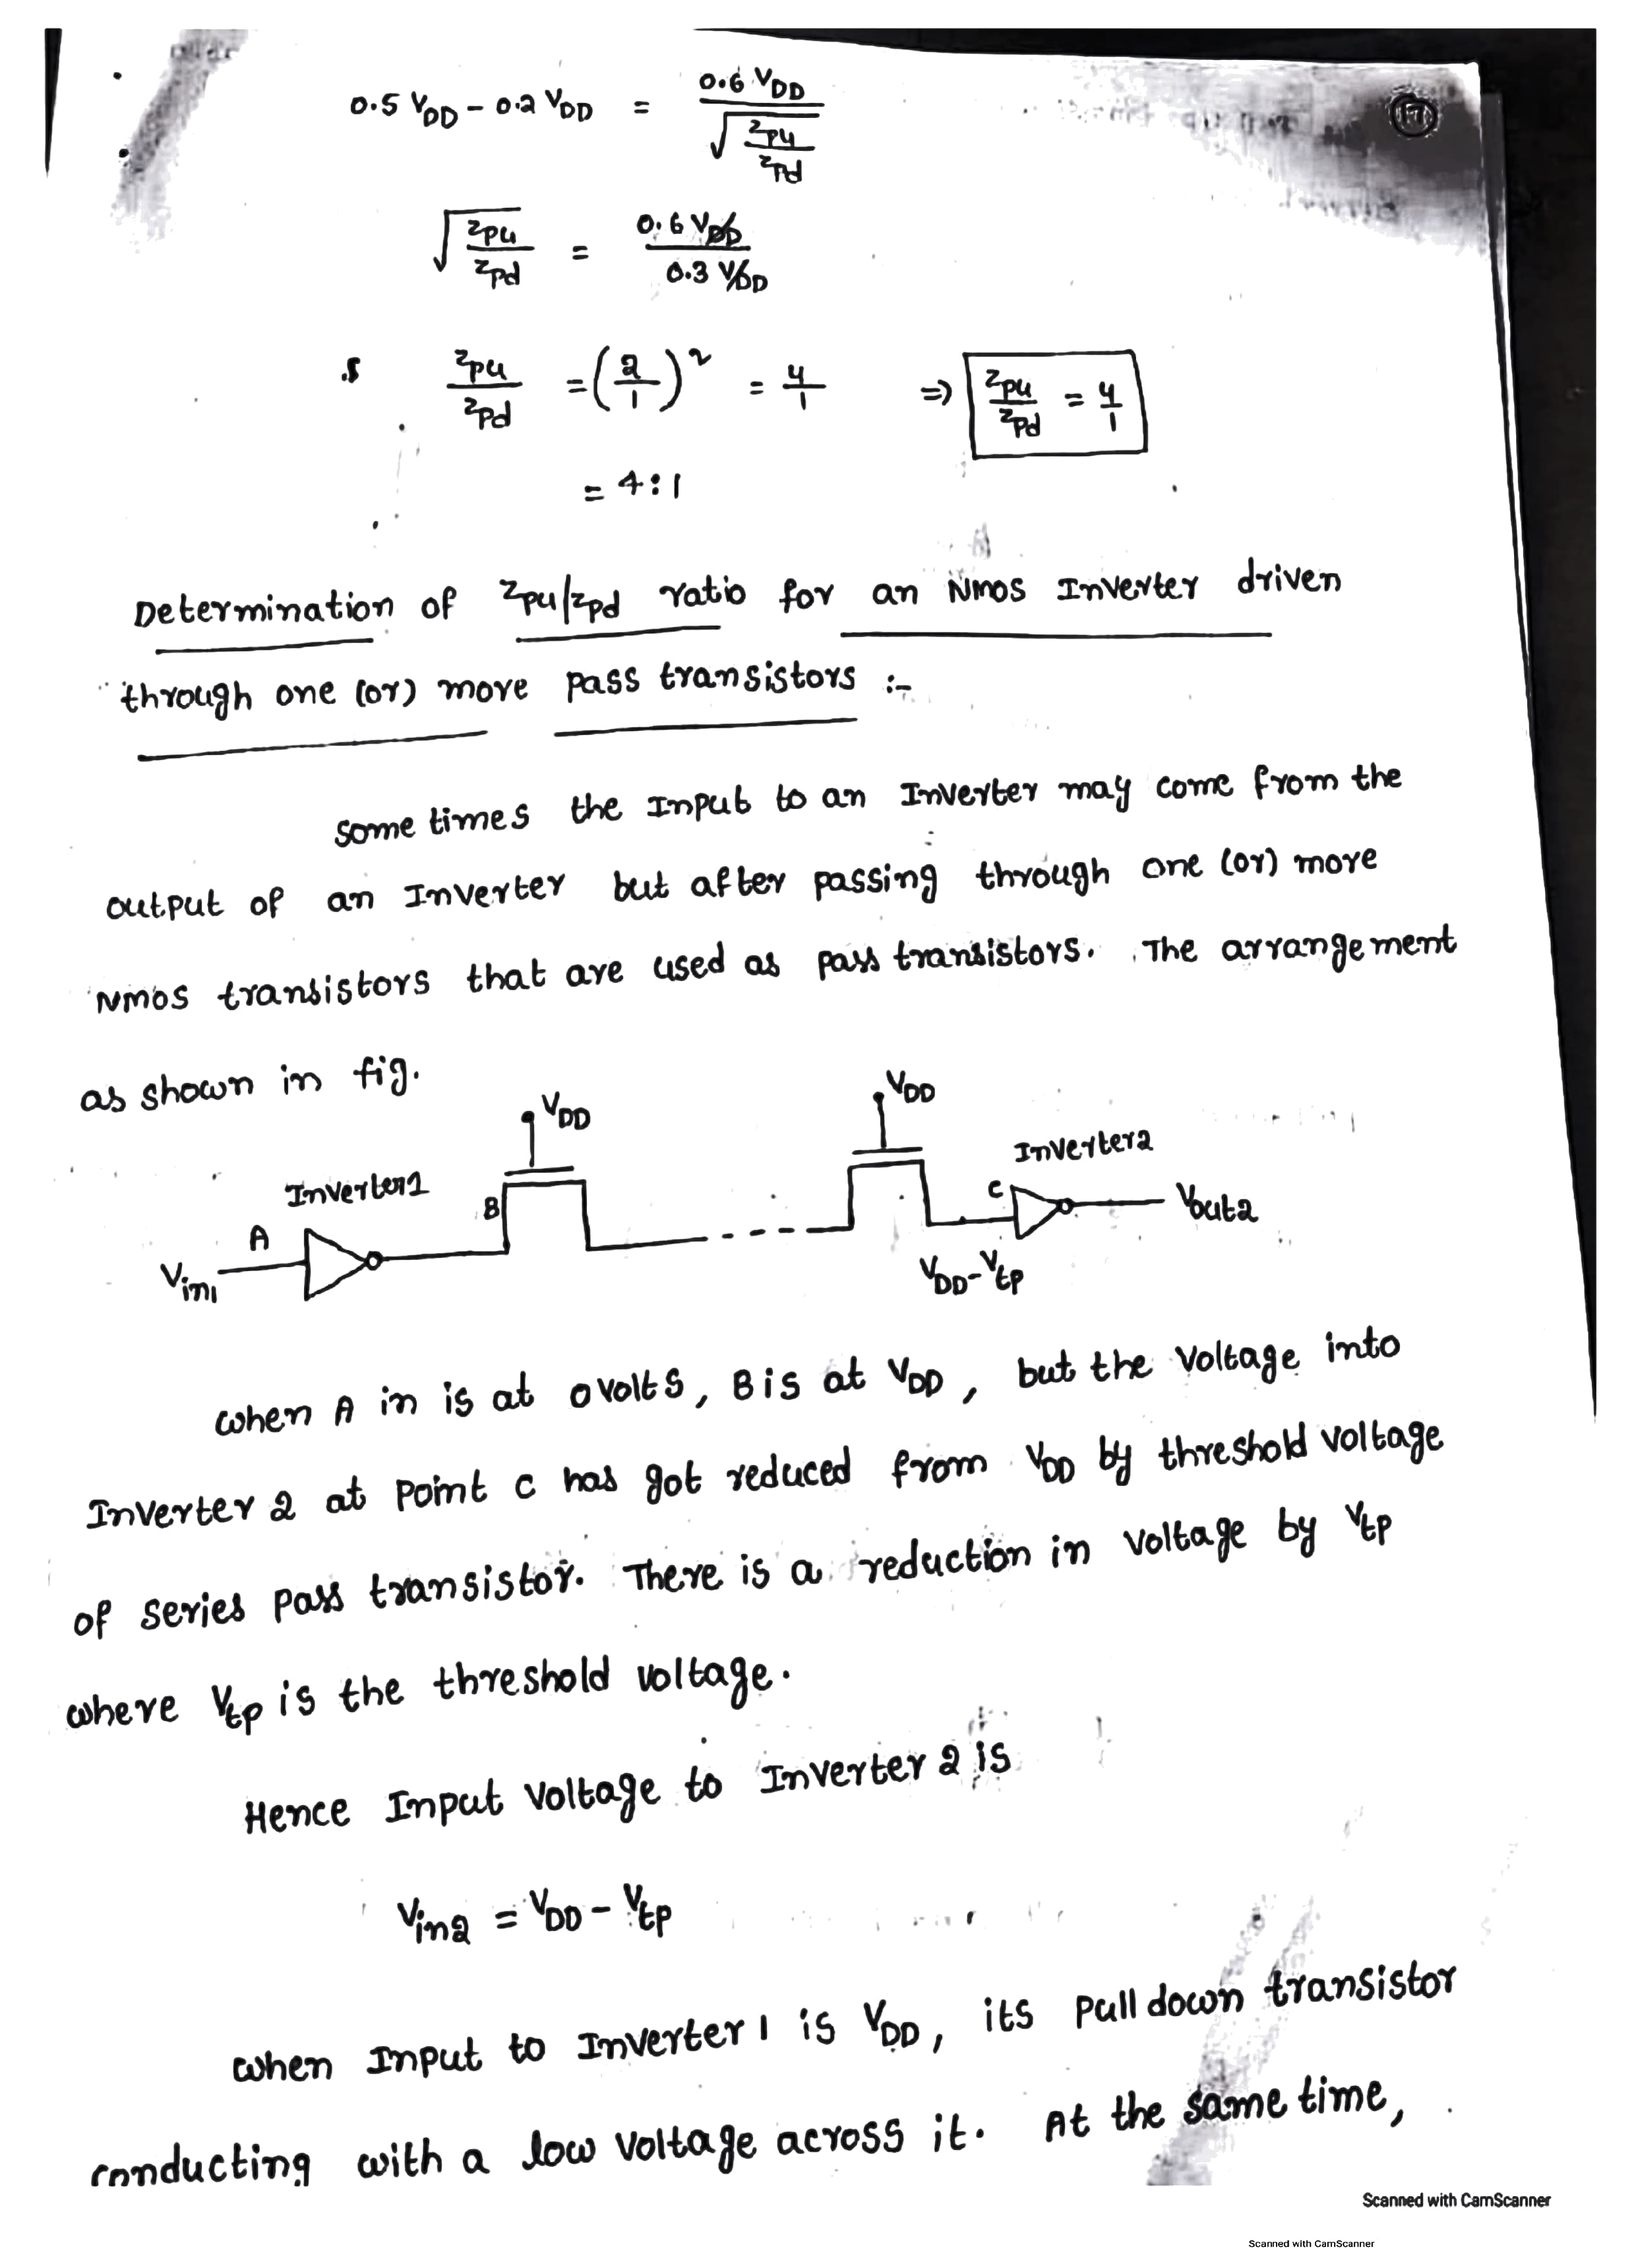 17
0.5 VDD - 0.2 VDD = 0.6 VDD / √(Zpu/Zpd)
√(Zpu/Zpd) = 0.6 VDD / 0.3 VDD
Zpu/Zpd = (2/1)² = 4/1 ⇒ Zpu/Zpd = 4/1
= 4:1
Determination of Zpu/Zpd ratio for an Nmos Inverter driven
through one (or) more pass transistors :-
Some times the Input to an Inverter may come from the
output of an Inverter but after passing through one (or) more
Nmos transistors that are used as pass transistors. The arrangement
as shown in fig.
VDD
VDD
Inverter1
Inverter2
B
C
A
Vin1
Vout2
VDD-Vtp
when A in is at 0 volts, B is at VDD, but the Voltage into
Inverter 2 at Point C has got reduced from VDD by threshold voltage
of series pass transistor. There is a reduction in voltage by Vtp
where Vtp is the threshold voltage.
Hence Input Voltage to Inverter 2 is
Vin2 = VDD - Vtp
when Input to Inverter 1 is VDD, its Pull down transistor
conducting with a low voltage across it. At the same time,
Scanned with CamScanner
Scanned with CamScanner